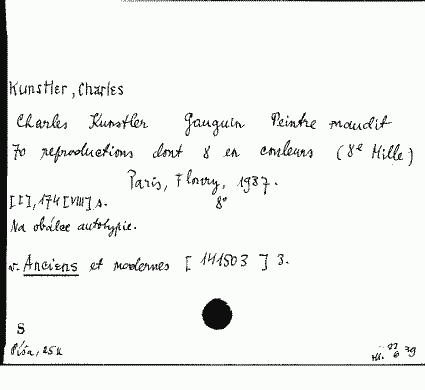 Kunstler, Charles
Charles Kunstler Gauguin Peintre maudit
70 reproductions dont 8 en couleurs (8e Mille)
Paris, Floury, 1937.
[I], 174 [VIII] s. 8°
Na obálce autotypie.
v. Anciens et modernes [141503] 3.
S
25
39